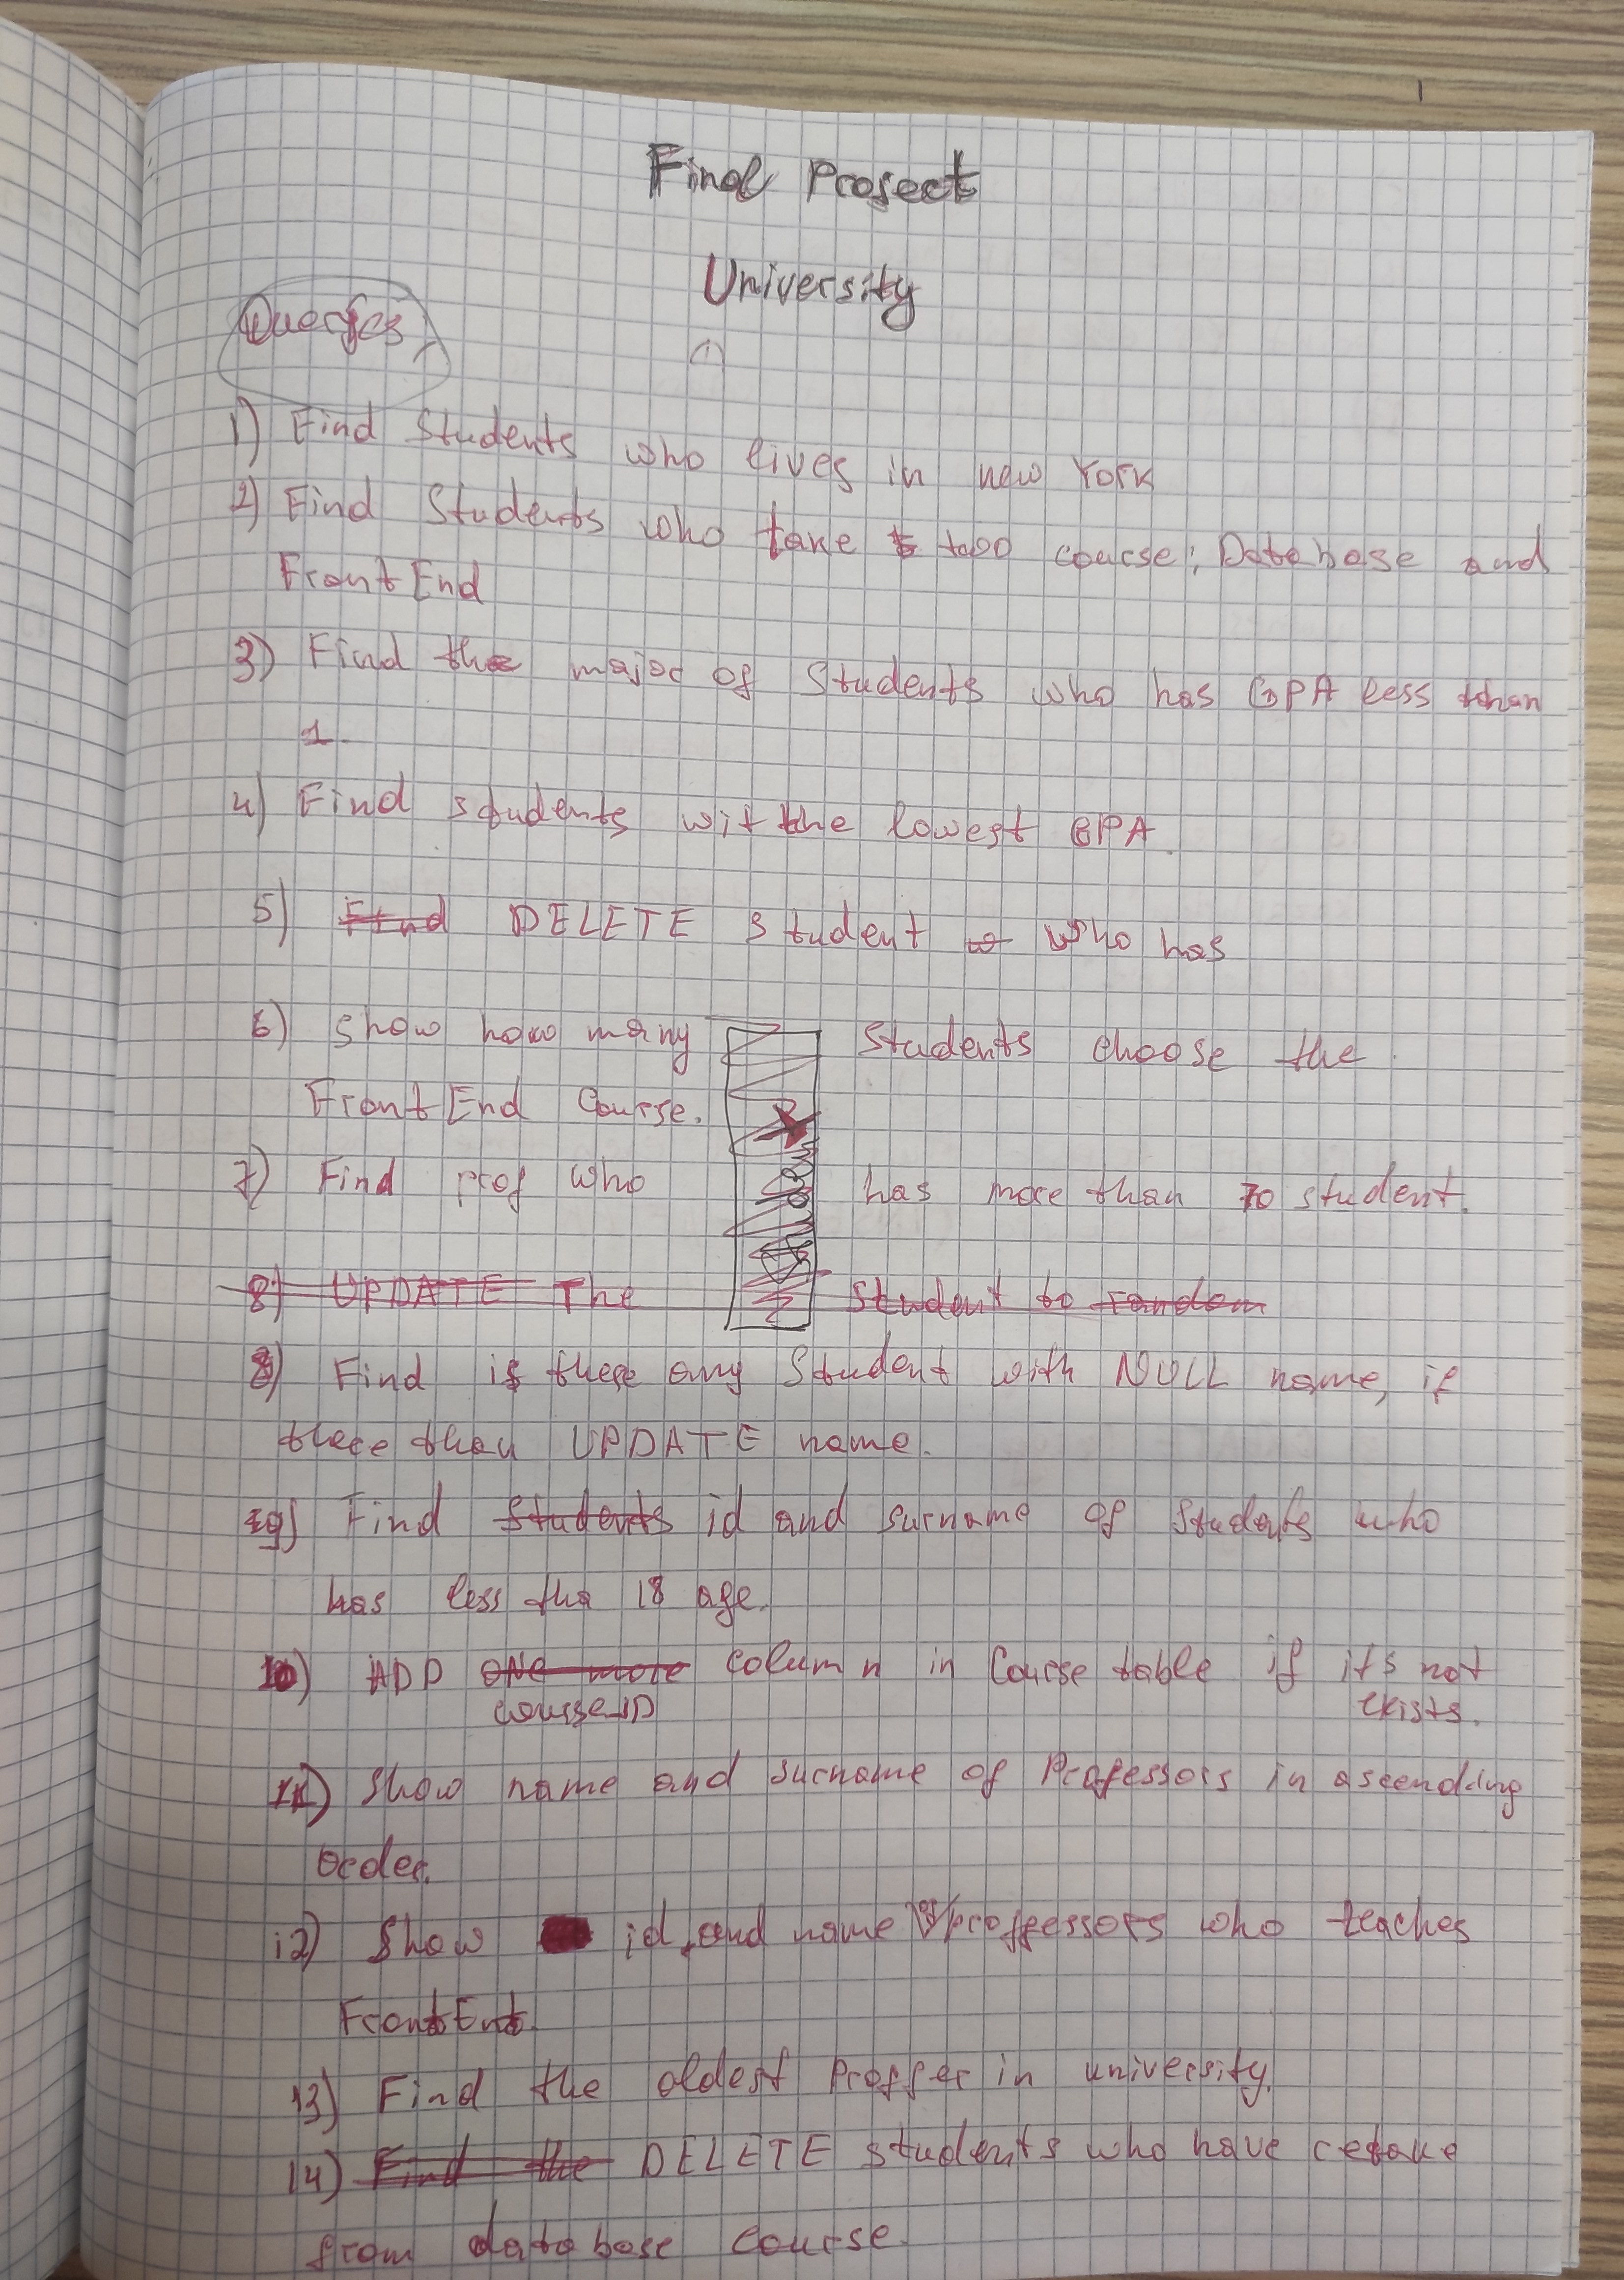 Final Project
University
Queries
1) Find Students who lives in new York
2) Find Students who take two course: Database and
FrontEnd
3) Find the major of Students who has GPA less than
1.
4) Find students wit the lowest GPA.
5) Find DELETE Student who has
6) Show how many Students choose the
FrontEnd Course.
7) Find prof who has more than 70 student.
8) UPDATE The Student to random
8) Find is there any Student with NULL name, if
there then UPDATE name.
9) Find Students id and surname of Students who
has less tha 18 age.
10) ADD one more column in Course table if it's not
course_ID exists.
11) Show name and surname of Professors in ascending
order.
12) Show id, and name of proffessors who teaches
FrontEnt.
13) Find the oldest Proffer in university.
14) Find the DELETE students who have retake
from database course.